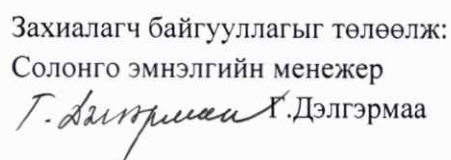 Захиалагч байгууллагыг төлөөлж:
Солонго эмнэлгийн менежер
Г. Дэлгэрмаа Г.Дэлгэрмаа